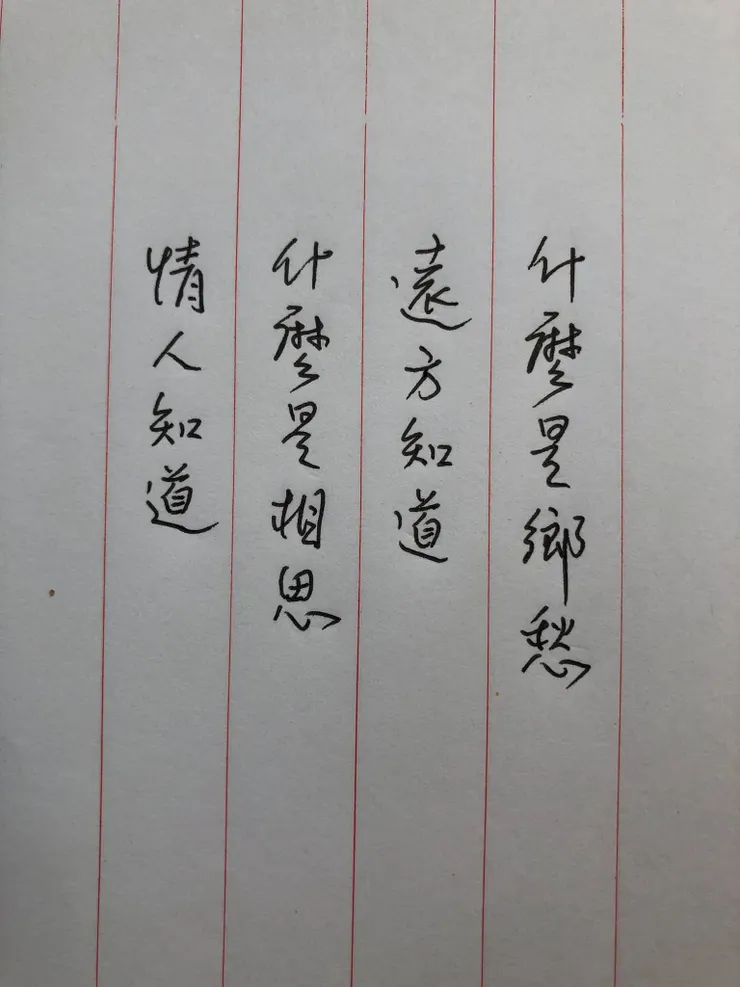 什麼是鄉愁
遠方知道
什麼是相思
情人知道